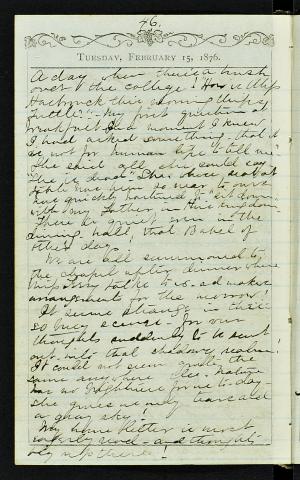 46.
TUESDAY, FEBRUARY 15, 1876.
A day when there's a hush
over the college! "How is Miss
Hasbrouck this morning Miss
Tuttle?" - My first question at
breakfast. In a moment I knew
I had asked something that it
was not for human lips to tell me
She said all she could say
"She is dead." She
have gone so near to ours
quickly
with my Father, in His Kingdom
There is grief, even in the
dining hall, that Babel of
other days.
We are all summoned to
the chapel after dinner where
Miss talks to us and makes
arrangements for the morrow!
It seems strange in this
so busy scene. For our
thoughts suddenly to be sent
out into that shadowy realm.
It could not seem quite the
same anywhere else. Nature
has no brightness for me to-day
she gives us only tears and
a gray sky!
My home letter is most
eagerly read - and thought-